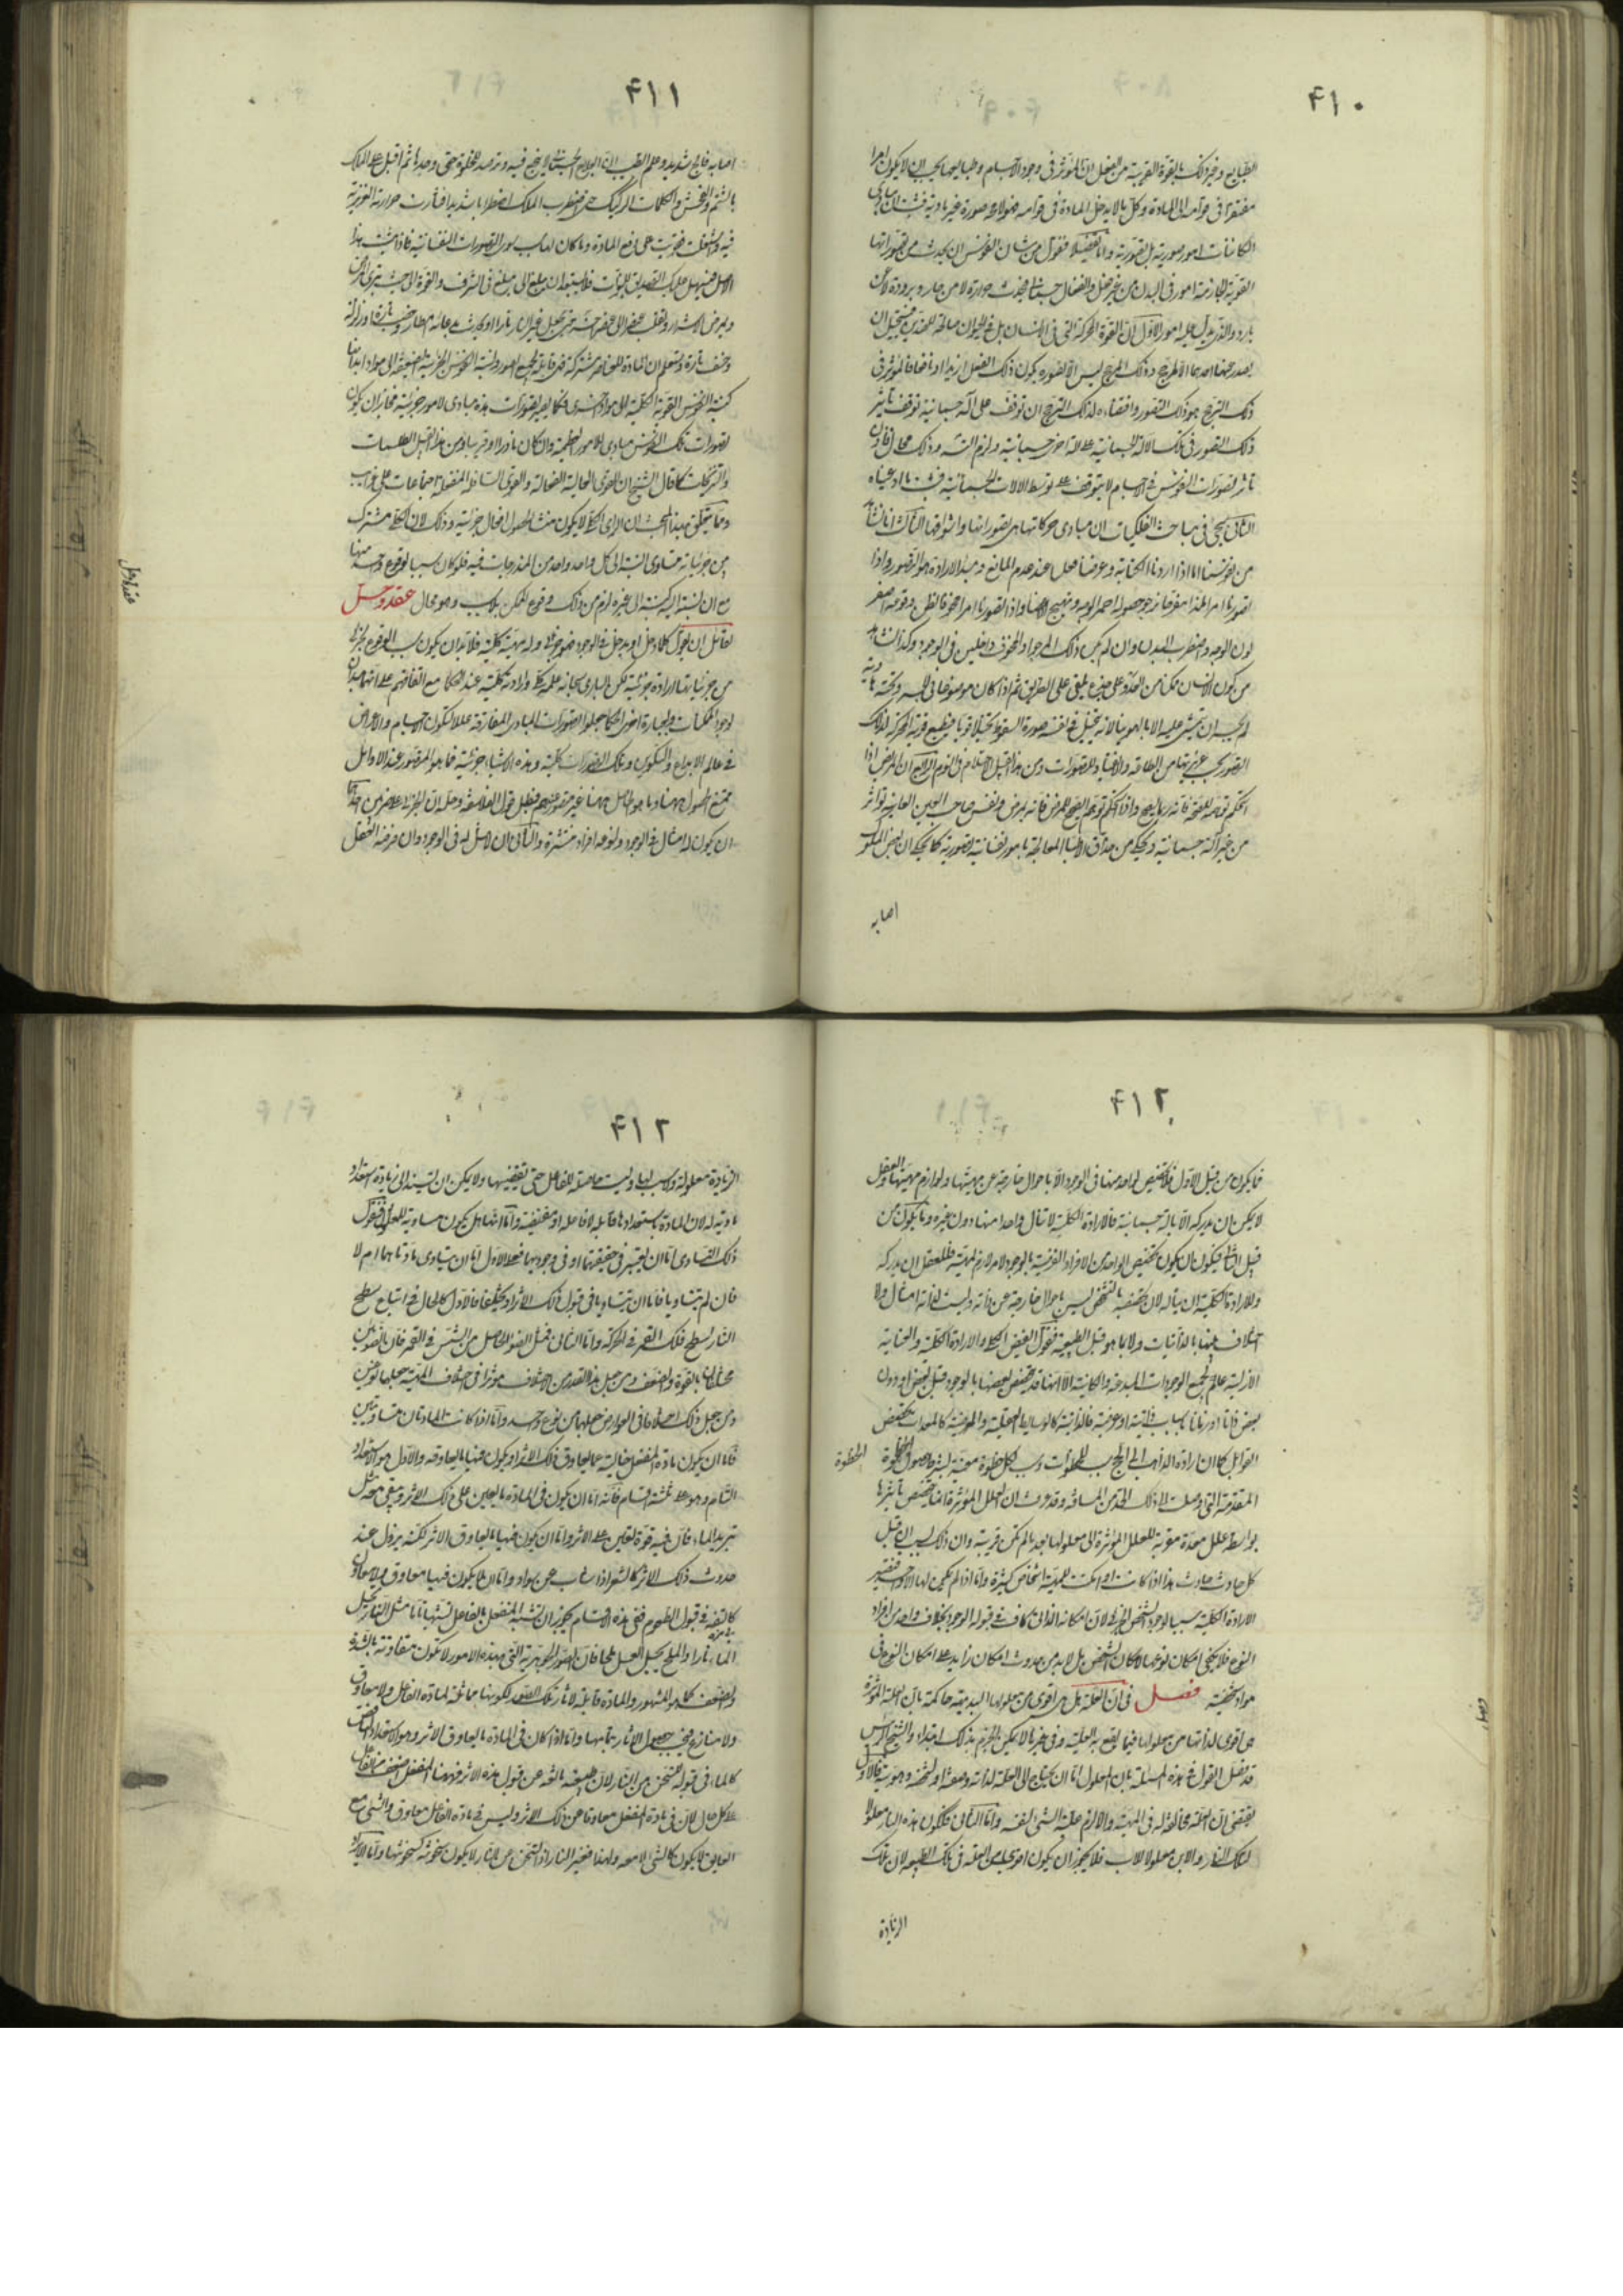 ۴۱۰
الطبايع وغير ذلك بالقوة القريبة من الفعل ان المؤثر فى وجود الاجسام وطبايعها يجب ان لا يكون امرا
مفتقرا فى قوامه الى المادة وكل ما لا يدخل المادة فى قوامه فهو لا محة صورة غير مادية فثبت ان مبادى
الكائنات امور صورية بل تصورية واما تفصيلا فنقول من شان النفوس ان يحدث من تصوراتها
القوية الجازمة امور فى البدن من غير فعل وانفعال جسمانى فيحدث حرارة لا من حار وبرودة لا عن
بارد والذى يدل عليه امور الاول ان القوة المحركة التى فى الانسان بل فى الحيوان صالحة للضدين فيستحيل ان
يصدر عنها احدهما الا لمرجح وذلك المرجح ليس الا تصوره بكون ذلك الفعل لذيذا او نافعا فالمؤثر فى
ذلك الترجح هو ذلك التصور واقتضاءه لذلك الترجح ان توقف على آلة جسمانية توقف تاثير
ذلك التصور فى تلك الالة الجسمانية على الة اخرى جسمانية ولزم التسلسل وذلك محال فاذن
تاثير تصورات النفوس فى الاجسام لا يتوقف على توسط الالات الجسمانية فثبت ما ادعيناه
الثانى سيجئ فى مباحث الفلكيات ان مبادى حركاتها هى تصوراتها واشواقها الثالث انا نشاهد
من نفوسنا انا اذا اردنا الكتابة وعزمنا فعل عند عدم المانع ومبدأ الارادة هو التصور وانا اذا
تصورنا امرا لذيذا مفرحا نرجو حصوله احمر الوجه وتهيج الاعضا واذا تصورنا امرا مخوفا نظن وقوعه اصفر
لون الوجه واضطرب البدن وان لم يكن ذلك المرجو او المخوف داخلين فى الوجود وكذا نشاهد
من كون الانسان متمكنا من العدو على جذع يلقى على الطريق ثم اذا كان موضوعا فى الجسر وتحته هاوية
لم يجسر ان يمشى عليه الا بالهوينا لانه يتخيل فى نفسه صورة السقوط تخيلا قويا فيطيع قوته المحركة لذلك
التصور بحسب غريزتها من الطاعة والانقياد للتصورات ومن هذا القبيل الاحتلام فى النوم الرابع ان المريض اذا
استحكم توهمه للصحة فانه ربما يصح واذا استحكم توهم الصحيح للمرض فانه يمرض ونفس صاحب العين العاينة تؤثر
من غير آلة جسمانية ويحكى من حذاق الاطبا المعالجة بامور نفسانية تصورية كما يحكى ان بعض الملوك
اصابه
۴۱۱
اصابه فالج شديد وعلم الطبيب ان العلاج الجسمانى لا ينجع فيه وترصد للخلوة حتى وجدها ثم اقبل على الملك
بالشتم والفحش والكلمات الركيك حتى اضطرب الملك اضطرابا شديدا فثارت حرارته الغريزية
فيه واشتعلت فقويت على دفع المادة وما كان لهاب سوى التصورات النفسانية فاذا ثبت هذا
الاصل فيسهل عليك التصديق بالنبوات فلا يستبعد ان يبلغ الى مبلغ فى الشرف والقوة الى حيث يبرئ المرضى
ويمرض الاشرار ويقلب عنصرا الى عنصر آخر حتى يجعل غير النار نارا او يحدث بدعائه امطار وخصب تارة او زلزلة
وخسف تارة وستعلم ان المادة للعناصر مشتركة فهى قابلة لجميع الصور ونسبة النفوس الجزئية الضعيفة الى مواد ابدانها
كنسبة النفوس القوية الكلية الى مواد اخرى فكما يصير تصورات هذه مبادى لامور جزئية فجاز ان يكون
تصورات تلك النفوس مبادى للامور العظيمة وان كان نادرا وقريبا ومن هذا القبيل الطلسمات
والنيرنجات كما قال الشيخ ان للقوى العالية الفعالة والقوى السافلة المنفعلة اجتماعات على غرائب
ومما يتعلق بهذا المبحث ان الراى الكلى لا يكون منشأ لحصول افعال جزئية وذلك لان الكلى مشترك
بين جزئياته متساوى النسبة الى كل واحد واحد من المندرجات فيه فلو كان سببا لوقوع واحد منها
مع ان نسبته اليه كنسبته الى غيره لزم من ذلك وقوع الممكن بلا سبب وهو محال عقد وحل
لقائل ان يقول كلما دخل او يدخل فى الوجود فهو جزئى وله مهية كلية فلا بد ان يكون سبب الوقوع لجزئى
من جزئياتها ارادة جزئية لكن البارى سبحانه علمه كلى وارادته كلية عند الحكما مع اتفاقهم على انهما مبدان
لوجود الممكنات وبعبارة اخرى الحكما جعلوا تصورات المبادى المفارقة عللا لتكون الاجسام والاعراض
فى عالم الابداع والتكوين وتلك التصورات كلية وهذه الاشياء جزئية فما هو المتصور عند الاوائل
ممتنع الحصول ههنا وما هو الحاصل ههنا غير متصور عندهم فبطل قول الفلاسفة وحله ان الجزئى على ضربين احدهما
ان يكون له امثال فى الوجود ولنوعه افراد منتشرة والثانى ان لا مثل له فى الوجود وان فرضه العقل
عقد وحل
۴۱۲
فما يكون من قبيل الاول فلا تخصيص لواحد منها فى الوجود الا باحوال خارجة عن مهيتها ولوازم مهيتها والعقل
لا يمكن ان يدركه الا بالة جسمانية فالارادة الكلية لا تنال واحدا منها دون غيره وما يكون من
قبيل الثانى فيكون ان يكون تخصيص الواحد من الافراد الفرضية بالوجود لامر لازم لمهيته فللعقل ان يدركه
وللارادة الكلية ان يناله لان تخصصه بالتشخص ليس باحوال خارجة عن ذاته وليست لذاته امثال ولا
اختلاف بينها بالذاتيات ولا بما هو قبل الطبيعة فنقول الفيض الكلى والارادة الكلية والعناية
الازلية علمه بجميع الموجودات المبدعة والكائنة الا انها قد يتخصص بعضها بالوجود قبل بعض او دون
بعض ذاتا او زمانا باسباب ذاتية او عرضية فالذاتية كالوسايط العقلية والعرضية كالمعدات بتخصيص
القوابل كما ان ارادة الذاهب الى الحج سبب للخطوات وسبب لكل خطوة معينة بشرط حصول الخطوة
الخطوة
المتقدمة التى اوصلت الى ذلك الحد من المسافة وقد عرفت ان العلل المؤثرة انما يتخصص تاثيرها
بواسطة علل معدة مقربة للعلل المؤثرة الى معلولها بعد ما لم تكن قريبة وان ذلك بسبب ان قبل
كل حادث حادث هذا اذا كانت او امكنت للمهية اشخاص كثيرة واما اذا لم يكن لها الا واحد فتصير
الارادة الكلية سببا لوجود الشخص الجزئى لان امكانه الذاتى كاف فى قبوله الوجود بخلاف واحد من افراد
النوع فلا يكفى امكان نوعها لامكان الشخص بل لا بد من حدوث امكان زايد على امكان النوع فى
مواد شخصية فصل فى ان العلة هل هى اقوى من معلولها البديهة حاكمة بان العلة المؤثرة
هى اقوى لذاتها من معلولها فيما يقع به العلية وفى غيرها لا يمكن الجزم بذلك ابتداء والشيخ الرئيس
قد فصل القول فى هذه المسئلة بان المعلول اما ان يحتاج الى العلة لذاته وحقيقته او لتشخصه وهويته فالاول
يقتضى ان العلة مخالفة له فى المهية والا لزم علية الشئ لنفسه واما الثانى فكون هذه النار معلولا
لتلك النار والابن معلولا للاب فلا يجوز ان يكون اقوى من العلة فى تلك الطبيعة لان تلك
الزيادة
فصل
۴۱۳
الزيادة معلولة ولا سبب لها وليست حاصلة للفاعل حتى يقتضيها ولا يمكن ان تستند الى زيادة استعداد
مادية له لان المادة باستعدادها قابلة لا فاعلة او مقتضية واما انها هل يكون مساوية للعلة فنقول
ذلك التساوى اما ان يعتبر فى حقيقتهما او فى وجوديهما فعلى الاول اما ان يتساوى مادتاهما ام لا
فان لم يتساويا فاما ان يتساويا فى قبول ذلك الاثر او يختلفا فالاول كالحال فى اتباع سطح
النار لسطح فلك القمر فى الحركة واما الثانى فمثل الضوء الحاصل من الشمس فى القمر فان الضوئين
مختلفان بالقوة والضعف ومن جعل هذا القدر من الاختلاف مؤثرا فى اختلاف المهية جعلهما نوعين
ومن جعل ذلك اختلافا فى العوارض جعلهما من نوع واحد واما اذا كانت المادتان متساويتين
فاما ان يكون مادة المنفعل خالية عما يعاوق ذلك الاثر او يكون فيها ما يعاوقه والاول هو الاستعداد
التام وهو على ثلثة اقسام فانه اما ان يكون فى المادة ما يعين على ذلك الاثر ويبقى معه مثل
تبريد الماء فان فيه قوة تعين على الاثر واما ان يكون فيها ما يعاوق الاثر لكنه يزول عند
حدوث ذلك الاثر كالشعر اذا شاب عن سواد واما ان لا يكون فيها معاوق ولا معاون
كالتفه فى قبول الطعوم ففى هذه الاقسام يجوز ان تشبه المنفعل بالفاعل تشبها تاما مثل النار تحيل
الماء نارا والملح يحيل العسل ملحا فان الصور الجوهرية التى بهذه الامور لا تكون متفاوتة بالشدة
والضعف كما هو المشهور والمادة قابلة لاثار تلك الصور لكونها مماثلة لمادة الفاعل ولا معاوق
ولا منازع فيجب حصول الاثار بتمامها واما اذا كان فى المادة ما يعاوق الاثر وهو الاستعداد الناقص
كالماء فى قبوله للتسخن من النار لان طبيعته مانعة عن قبول هذه الاثر فههنا المنفعل اضعف من الفاعل
على كل حال لان فى مادة المنفعل معاوقا عن ذلك الاثر وليس فى مادة الفاعل معاوق والشئ مع
العايق لا يكون كالشئ لا معه ولهذا فغير النار اذا تسخن عن النار لا يكون سخونته كسخونتها واما الا